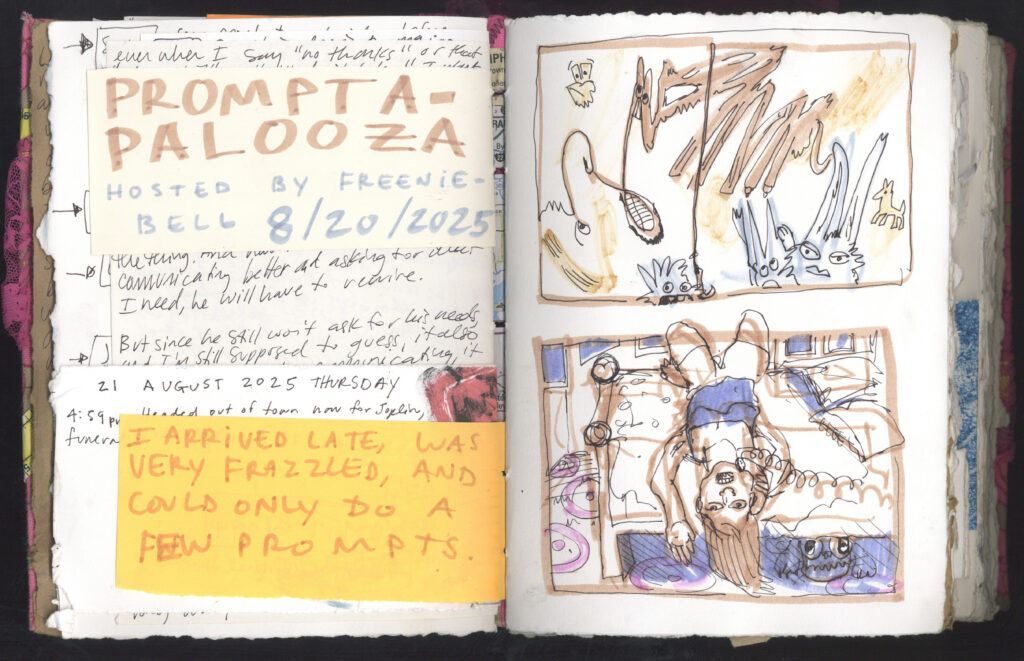 even when I say "no thanks" or that
PROMPTA-
PALOOZA
HOSTED BY FREENIE-
BELL 8/20/2025
the thing. And
communicating better and asking for what
I need, he will have to rewire.
But since he still won't ask for his needs
and I'm still supposed to guess, it also
communicating, it
21 AUGUST 2025 THURSDAY
4:59 pm Headed out of town now for Joplin,
funera
I ARRIVED LATE, WAS
VERY FRAZZLED, AND
COULD ONLY DO A
FEW PROMPTS.